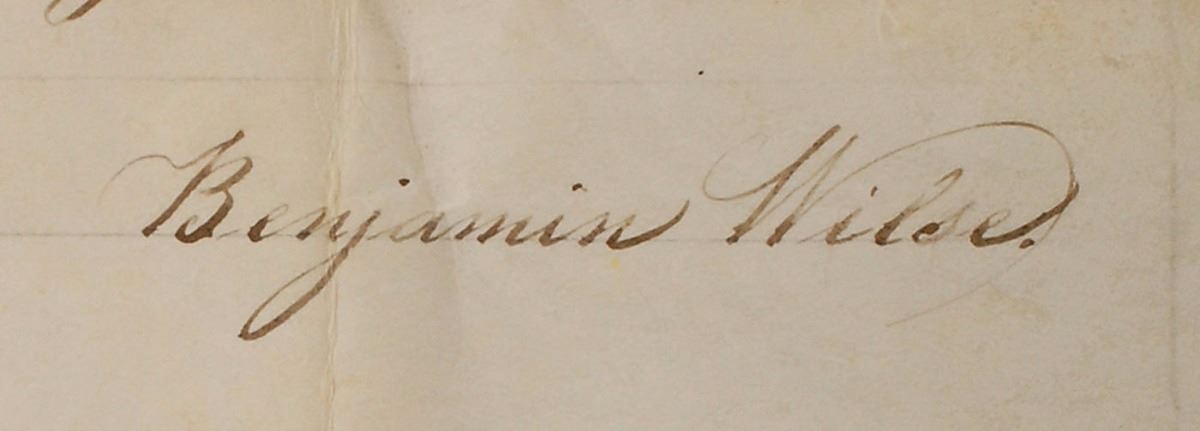 Benjamin Wilse.